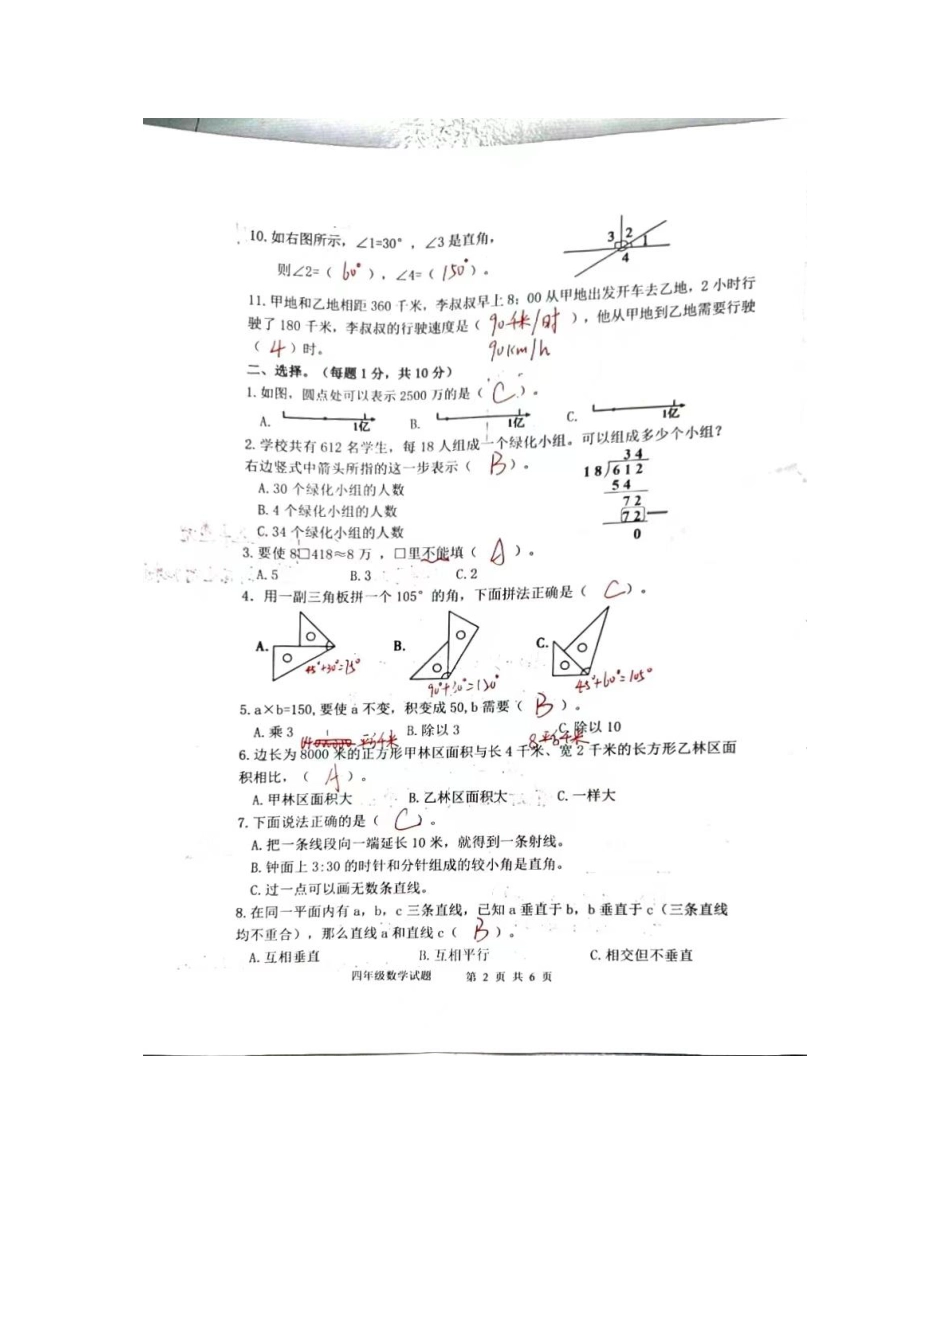 10.如右图所示，∠1=30°，∠3是直角，
3 2 1
4
则∠2=（ 60° ），∠4=（ 150° ）。
11.甲地和乙地相距360千米，李叔叔早上8：00从甲地出发开车去乙地，2小时行
驶了180千米，李叔叔的行驶速度是（ 90千米/时 ），他从甲地到乙地需要行驶
（ 4 ）时。 90km/h
二、选择。（每题1分，共10分）
1.如图，圆点处可以表示2500万的是（ C ）。
A. 1亿 B. 1亿 C. 1亿
2.学校共有612名学生，每18人组成一个绿化小组。可以组成多少个小组？
右边竖式中箭头所指的这一步表示（ B ）。
A.30个绿化小组的人数
B.4个绿化小组的人数
C.34个绿化小组的人数
34
18/612
54
72
72
0
3.要使8□418≈8万，□里不能填（ A ）。
A.5 B.3 C.2
4．用一副三角板拼一个105°的角，下面拼法正确是（ C ）。
A. B. C.
45°+30°=75° 90°+30°=120° 45°+60°=105°
5.a×b=150,要使a不变，积变成50,b需要（ B ）。
A.乘3 B.除以3 C.除以10
平方千米 8平方千米
6.边长为8000米的正方形甲林区面积与长4千米、宽2千米的长方形乙林区面
积相比，（ A ）。
A.甲林区面积大 B.乙林区面积大 C.一样大
7.下面说法正确的是（ C ）。
A.把一条线段向一端延长10米，就得到一条射线。
B.钟面上3:30的时针和分针组成的较小角是直角。
C.过一点可以画无数条直线。
8.在同一平面内有a，b，c三条直线，已知a垂直于b，b垂直于c（三条直线
均不重合），那么直线a和直线c（ B ）。
A.互相垂直 B.互相平行 C.相交但不垂直
四年级数学试题 第 2 页 共 6 页